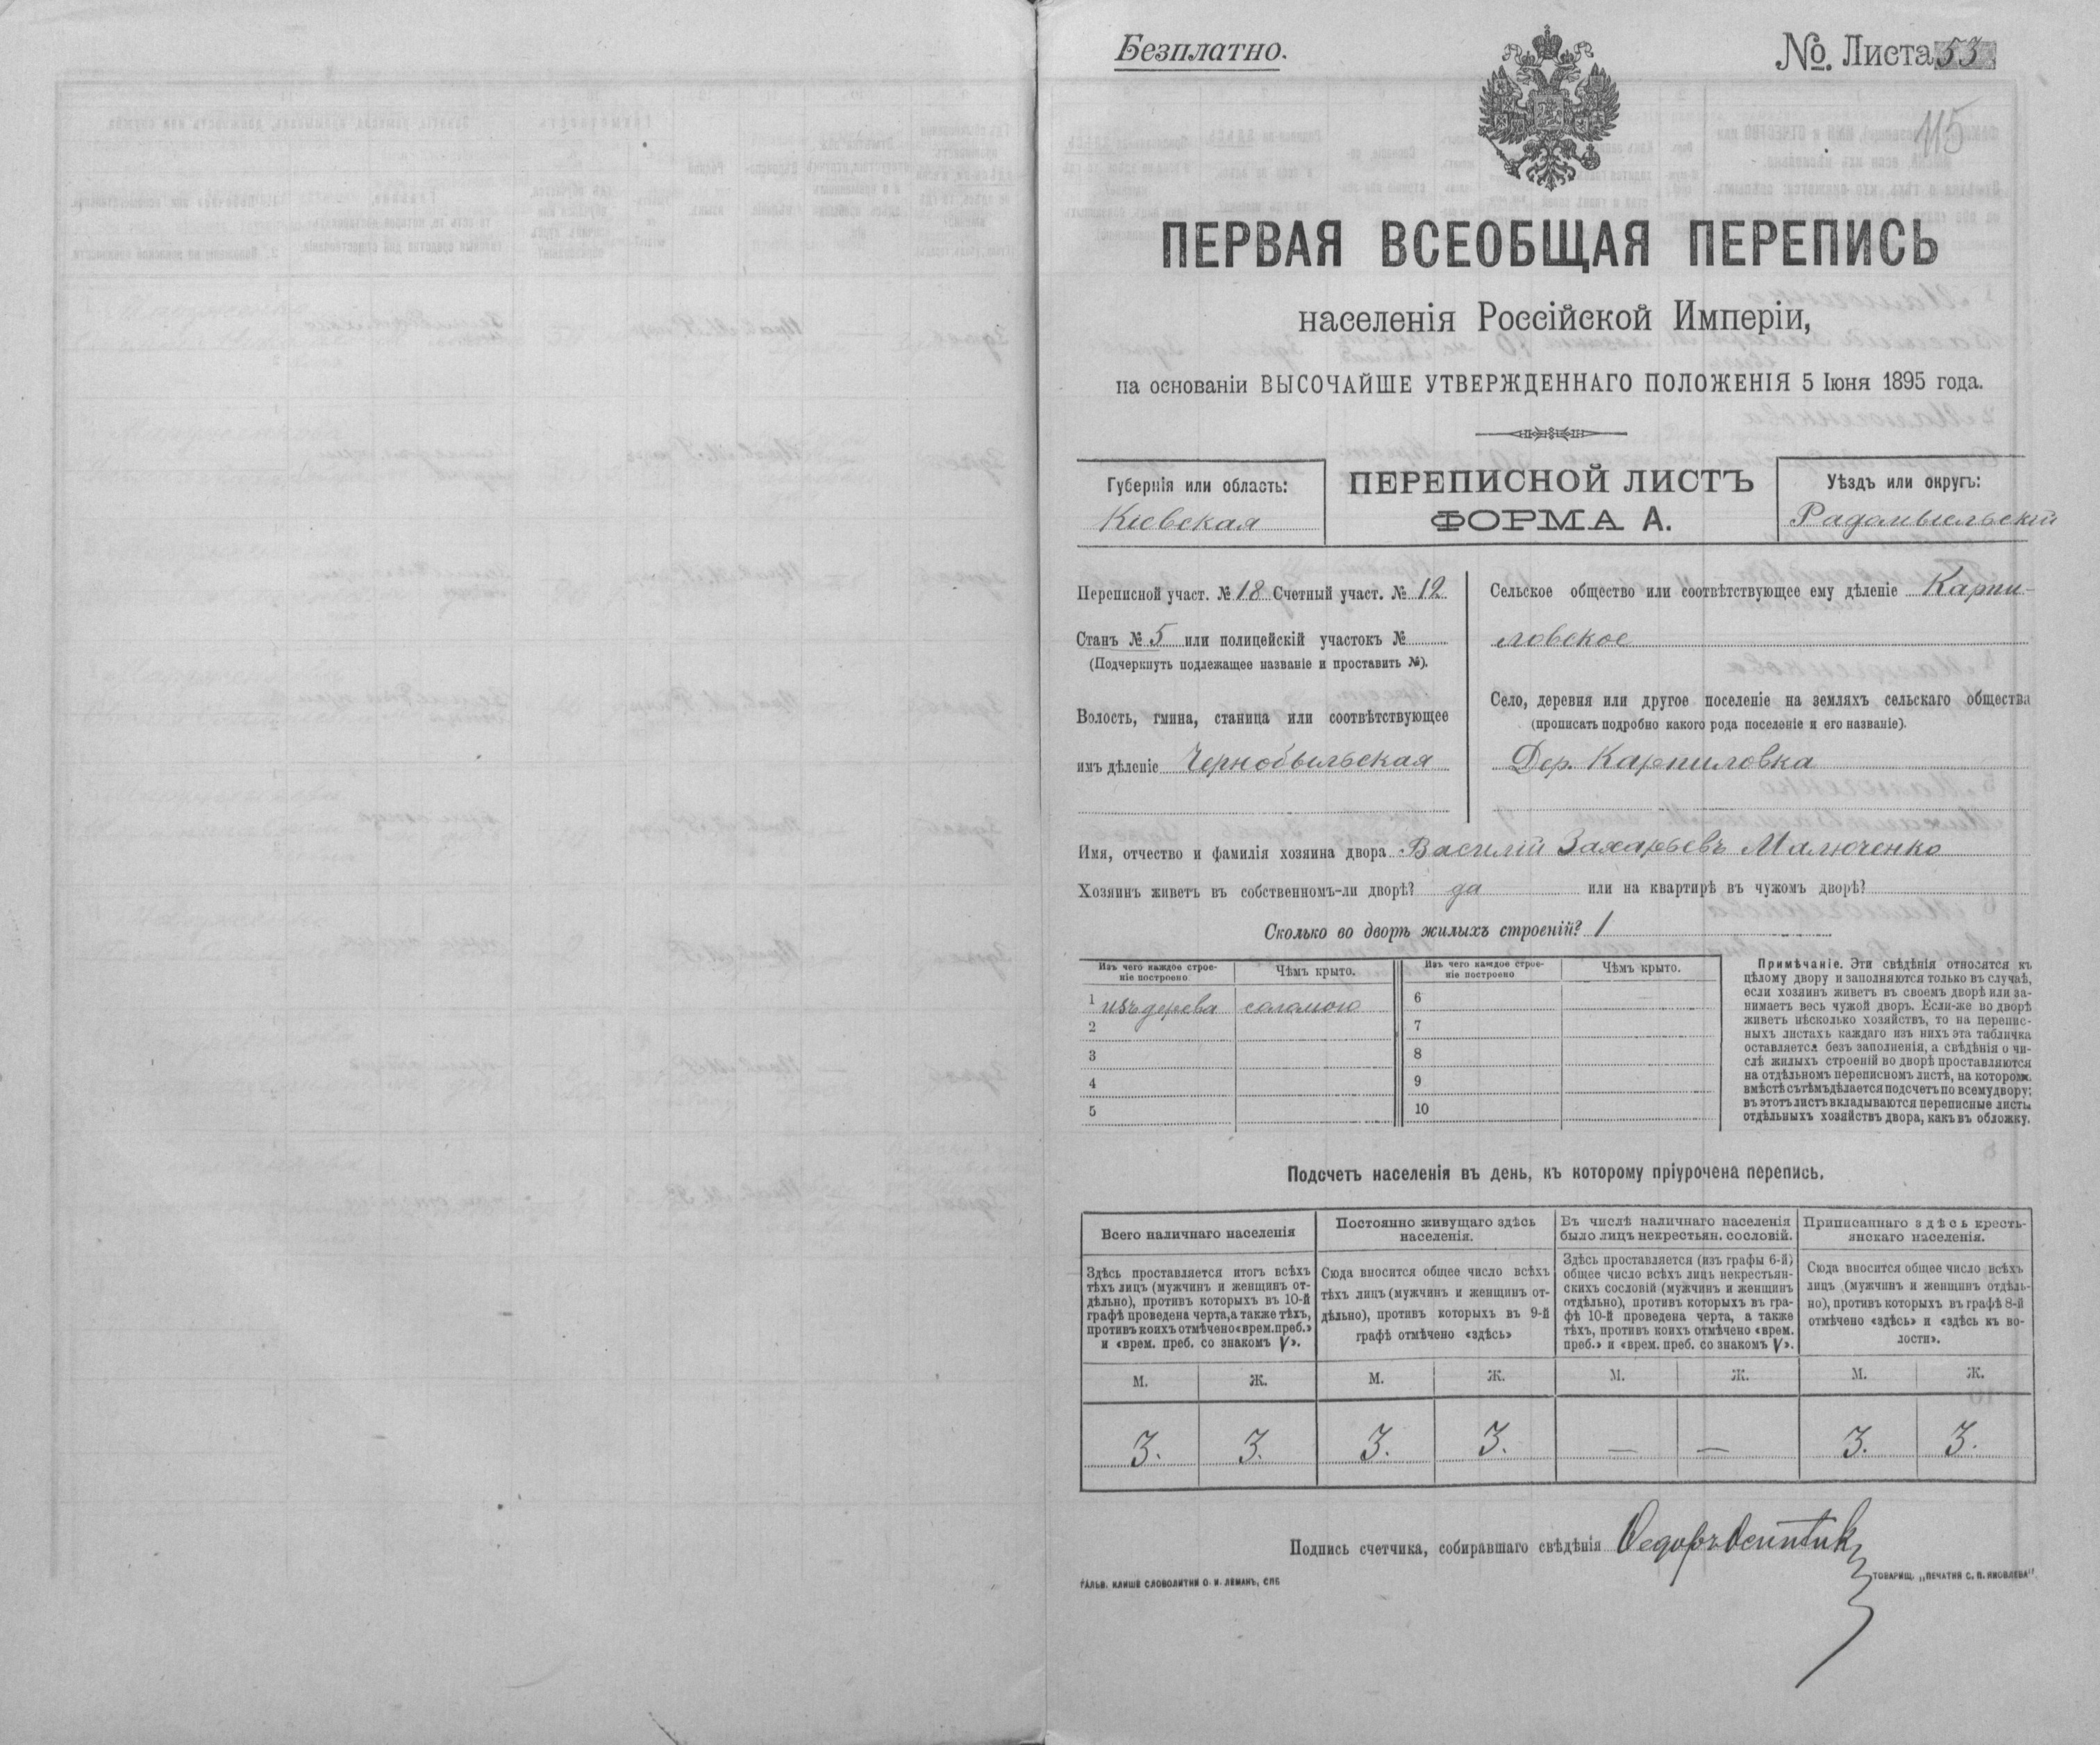 Безплатно.
№. Листа 53
115
ПЕРВАЯ ВСЕОБЩАЯ ПЕРЕПИСЬ
населенія Россійской Имперіи,
на основаніи ВЫСОЧАЙШЕ УТВЕРЖДЕННАГО ПОЛОЖЕНІЯ 5 Іюня 1895 года.
Губернія или область:
Кіевская
ПЕРЕПИСНОЙ ЛИСТЪ
ФОРМА А.
Уѣздъ или округъ:
Радомысльскій
Переписной участ. № 18 Счетный участ. № 12
Станъ № 5 или полицейскій участокъ №
(Подчеркнуть подлежащее названіе и проставить №).
Волость, гмина, станица или соотвѣтствующее
имъ дѣленіе Чернобыльская
Сельское общество или соотвѣтствующее ему дѣленіе Карпи-
ловское
Село, деревня или другое поселеніе на земляхъ сельскаго общества
(прописать подробно какого рода поселеніе и его названіе).
Дер. Карпиловка
Имя, отчество и фамилія хозяина двора Василій Захарьевъ Малюченко
Хозяинъ живетъ въ собственномъ-ли дворѣ? да или на квартирѣ въ чужомъ дворѣ?
Сколько во дворѣ жилыхъ строеній? 1
Изъ чего каждое строе-
ніе построено
Чѣмъ крыто.
1 изъ дерева соломою
2
3
4
5
Изъ чего каждое строе-
ніе построено
Чѣмъ крыто.
6
7
8
9
10
Примѣчаніе. Эти свѣдѣнія относятся къ
цѣлому двору и заполняются только въ случаѣ,
если хозяинъ живетъ въ своемъ дворѣ или за-
нимаетъ весь чужой дворъ. Если-же во дворѣ
живетъ нѣсколько хозяйствъ, то на перепис-
ныхъ листахъ каждаго изъ нихъ эта табличка
оставляется безъ заполненія, а свѣдѣнія о чи-
слѣ жилыхъ строеній во дворѣ проставляются
на отдѣльномъ переписномъ листѣ, на которомъ
вмѣстѣ съ тѣмъ дѣлается подсчетъ по всему двору;
въ этотъ листъ вкладываются переписные листы
отдѣльныхъ хозяйствъ двора, какъ въ обложку.
Подсчетъ населенія въ день, къ которому пріурочена перепись.
Всего наличнаго населенія
Здѣсь проставляется итогъ всѣхъ
тѣхъ лицъ (мужчинъ и женщинъ от-
дѣльно), противъ которыхъ въ 10-й
графѣ проведена черта, а также тѣхъ,
противъ коихъ отмѣчено «врем. преб.»
и «врем. преб. со знакомъ V».
Постоянно живущаго здѣсь
населенія.
Сюда вносится общее число всѣхъ
тѣхъ лицъ (мужчинъ и женщинъ от-
дѣльно), противъ которыхъ въ 9-й
графѣ отмѣчено «здѣсь»
Въ числѣ наличнаго населенія
было лицъ некрестьян. сословій.
Здѣсь проставляется (изъ графы 6-й)
общее число всѣхъ лицъ некрестьян-
скихъ сословій (мужчинъ и женщинъ
отдѣльно), противъ которыхъ въ гра-
фѣ 10-й проведена черта, а также
тѣхъ, противъ коихъ отмѣчено «врем.
преб.» и «врем. преб. со знакомъ V».
Приписаннаго здѣсь кресть-
янскаго населенія.
Сюда вносится общее число всѣхъ
лицъ (мужчинъ и женщинъ отдѣль-
но), противъ которыхъ въ графѣ 8-й
отмѣчено «здѣсь» и «здѣсь къ во-
лости».
М. Ж. М. Ж. М. Ж. М. Ж.
3. 3. 3. 3. — — 3. 3.
Подпись счетчика, собиравшаго свѣдѣнія
ГАЛЬВ. КЛИШЕ СЛОВОЛИТНИ О. И. ЛЕМАНЪ, СПБ
ТОВАРИЩ. „ПЕЧАТНЯ С. П. ЯКОВЛЕВА"